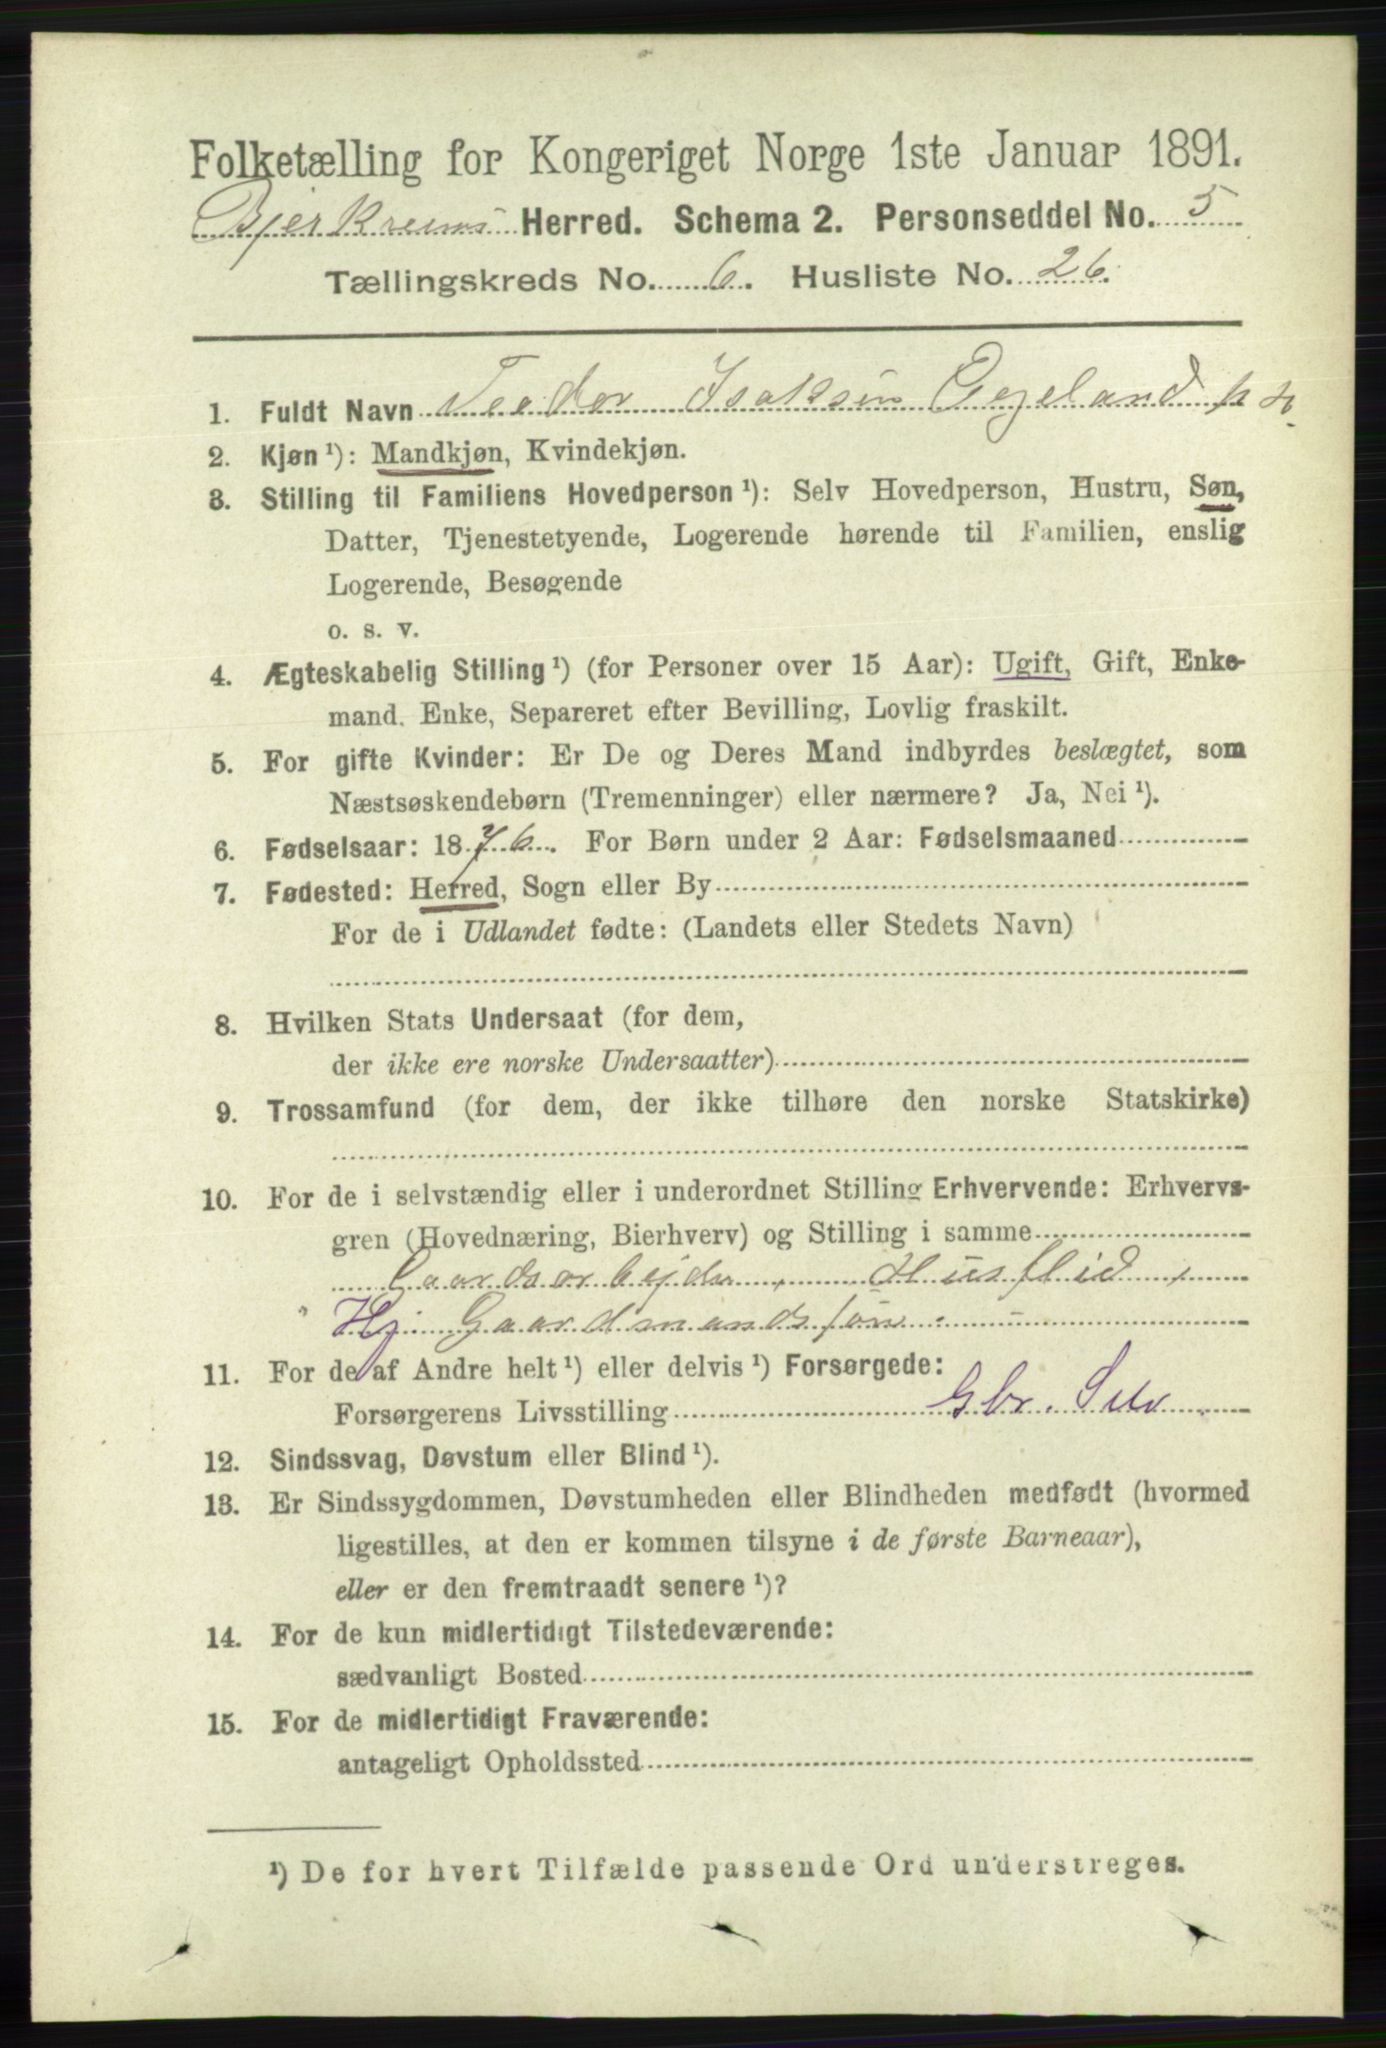 Folketælling for Kongeriget Norge 1ste Januar 1891.
Bjerkreims Herred. Schema 2. Personseddel No. 5
Tællingskreds No. 6. Husliste No. 26.
1. Fuldt Navn Teodor Isaksen
2. Kjøn ¹): Mandkjøn, Kvindekjøn.
3. Stilling til Familiens Hovedperson ¹): Selv Hovedperson, Hustru, Søn,
Datter, Tjenestetyende, Logerende hørende til Familien, enslig
Logerende, Besøgende
o. s. v.
4. Ægteskabelig Stilling ¹) (for Personer over 15 Aar): Ugift, Gift, Enke-
mand. Enke, Separeret efter Bevilling, Lovlig fraskilt.
5. For gifte Kvinder: Er De og Deres Mand indbyrdes beslægtet, som
Næstsøskendebørn (Tremenninger) eller nærmere? Ja, Nei ¹).
6. Fødselsaar: 1876. For Børn under 2 Aar: Fødselsmaaned
7. Fødested: Herred, Sogn eller By
For de i Udlandet fødte: (Landets eller Stedets Navn)
8. Hvilken Stats Undersaat (for dem,
der ikke ere norske Undersaatter)
9. Trossamfund (for dem, der ikke tilhøre den norske Statskirke)
10. For de i selvstændig eller i underordnet Stilling Erhvervende: Erhvervs-
gren (Hovednæring, Bierhverv) og Stilling i samme
Gaardsarbejder, Husflid,
Hj. Gaardmandssøn
11. For de af Andre helt ¹) eller delvis ¹) Forsørgede:
Forsørgerens Livsstilling Gbr. Selv
12. Sindssvag, Døvstum eller Blind ¹).
13. Er Sindssygdommen, Døvstumheden eller Blindheden medfødt (hvormed
ligestilles, at den er kommen tilsyne i de første Barneaar),
eller er den fremtraadt senere ¹)?
14. For de kun midlertidigt Tilstedeværende:
sædvanligt Bosted
15. For de midlertidigt Fraværende:
antageligt Opholdssted
¹) De for hvert Tilfælde passende Ord understreges.